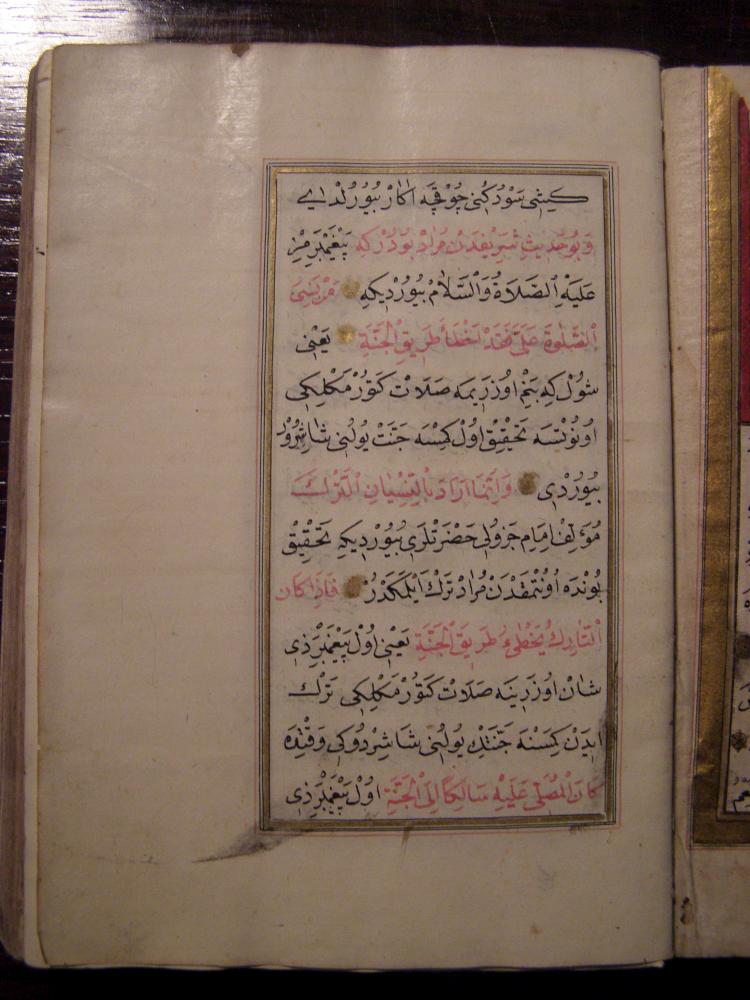 كیشی سَوْدُكُنی چُوْقچَه اَكَارْ بُیُورُلْدِ اَیْ
وَبُو حَدِیثِ شَرِیفْدَنْ مُرَادْ بُودُرْكِه پَیْغَمْبَرِمِزْ
عَلَیْهِ الصَّلَاةُ وَالسَّلَامْ بُیُورْدِیكِه مَنْ نَسِیَ
الصَّلٰوةَ عَلَیَّ فَقَدْ اَخْطَأَ طَرِیقَ الْجَنَّةِ یَعْنِی
شُوْل كِه بَنِمْ اوُزَرِیمَه صَلَاتْ كَتُورْمَكْلِكِی
اوُنُوْتسَه تَحْقِیقْ اوُلْ كِیمْسَه جَنَّتْ یُولُنِی شَاشِرُوْرْ
بُیُورْدِی وَاِنَّمَا اَرَادَ بِالنِّسْیَانِ التَّرْكَ
مُؤَلِّفْ اِمَامِ جَزُولِی حَضْرَتْلَرِی بُیُورْدِیكِه تَحْقِیقْ
بُونْدَه اوُنُتْمَقْدَنْ مُرَادْ تَرْكْ اَیْلَمَكْدُرْ فَاِذَا كَانَ
التَّارِكُ یُخْطِئُ طَرِیقَ الْجَنَّةِ یَعْنِی اوُلْ پَیْغَمْبَرْ ذِی
شَانْ اوُزَرِینَه صَلَاتْ كَتُورْمَكْلِكِی تَرْكْ
اِیدَنْ كِمْسَنَه جَنَّتِكْ یُولُنِی شَاشِرْدُوكِی وَقْتِدَه
كَانَ الْمُصَلِّی عَلَیْهِ سَالِكًا اِلَی الْجَنَّةِ اوُلْ پَیْغَمْبَرْ ذِی